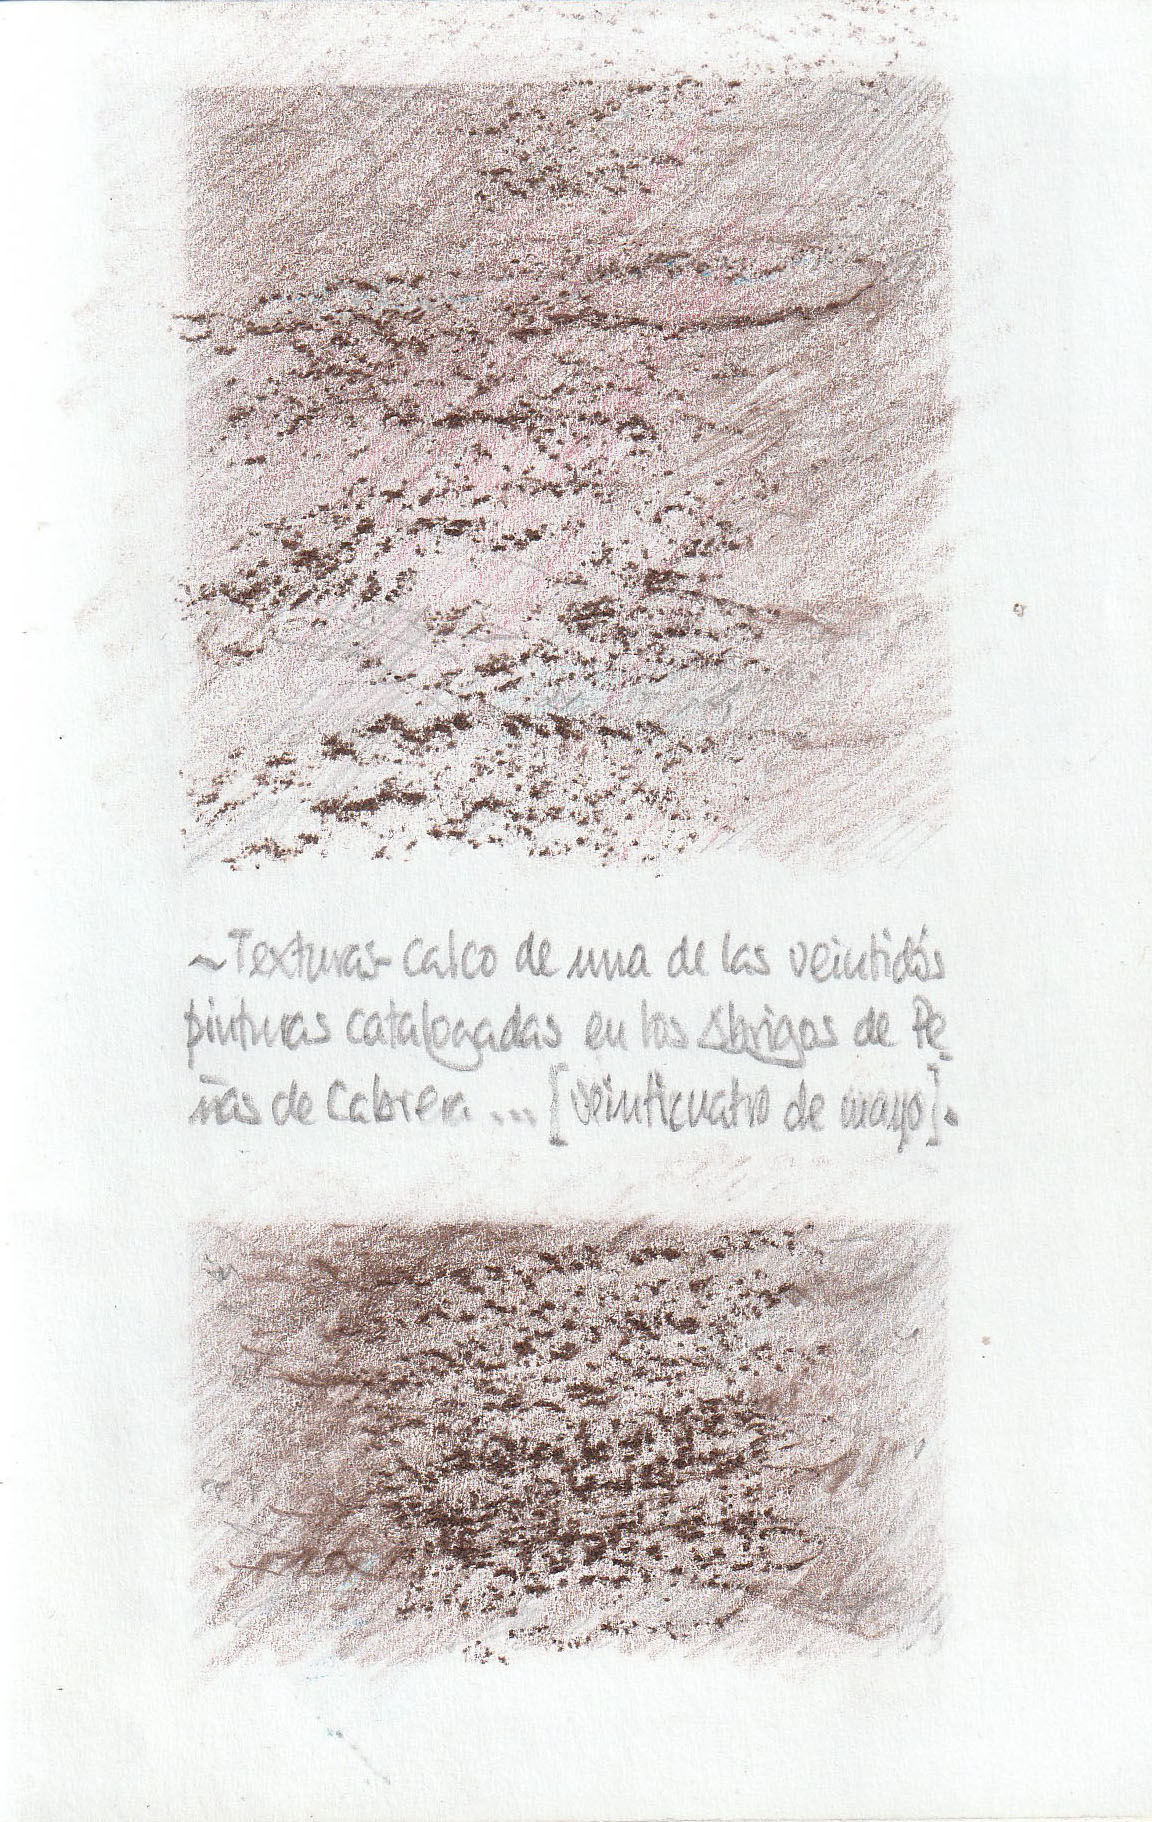 ~Texturas-calco de una de las veintidós
pinturas catalogadas en los Abrigos de Pe-
ñas de Cabrera ... [veinticuatro de mayo].